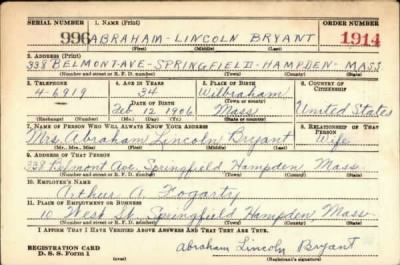 SERIAL NUMBER 1. NAME (Print) ORDER NUMBER
996 ABRAHAM - LINCOLN BRYANT 1914
(First) (Middle) (Last)
2. ADDRESS (Print)
338 BELMONT AVE - SPRINGFIELD - HAMPDEN - MASS
(Number and street or R. F. D. number) (Town) (County) (State)
3. TELEPHONE 4. AGE IN YEARS 5. PLACE OF BIRTH 6. COUNTRY OF CITIZENSHIP
4-6919 34 Wilbraham
DATE OF BIRTH (Town or county)
Feb 12 1906 Mass United States
(Exchange) (Number) (Mo.) (Day) (Yr.) (State or country)
7. NAME OF PERSON WHO WILL ALWAYS KNOW YOUR ADDRESS 8. RELATIONSHIP OF THAT PERSON
Mrs. Abraham Lincoln Bryant Wife
(Mr., Mrs., Miss) (First) (Middle) (Last)
9. ADDRESS OF THAT PERSON
338 Belmont Ave. Springfield Hampden Mass
(Number and street or R. F. D. number) (Town) (County) (State)
10. EMPLOYER'S NAME
Arthur A. Fogarty
11. PLACE OF EMPLOYMENT OR BUSINESS
10 West St. Springfield Hampden Mass
(Number and street or R. F. D. number) (Town) (County) (State)
I AFFIRM THAT I HAVE VERIFIED ABOVE ANSWERS AND THAT THEY ARE TRUE.
REGISTRATION CARD
D. S. S. Form 1 Abraham Lincoln Bryant
(Registrant's signature)